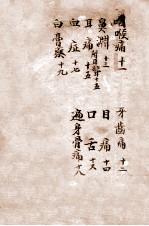 咽喉痛 十一 牙齒痛 十二
鼻淵 十三 目痛 十四
耳痛 十五 口舌 十六
血症 十七 遍身骨痛 十八
白 十九